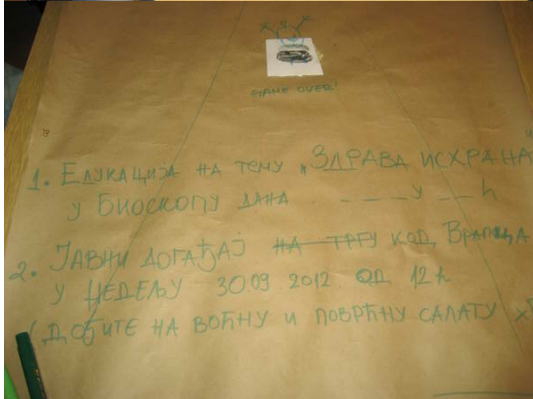 GAME OVER!
1. ЕДУКАЦИЈА НА ТЕМУ „ЗДРАВА ИСХРАНА
У БИОСКОПУ ДАНА ____ У ___ h
2. ЈАВНИ ДОГАЂАЈ НА ТРГУ КОД ВРАПЦА
У НЕДЕЉУ 30.09 2012 ОД 12 h
(ДОЂИТЕ НА ВОЋНУ И ПОВРЋНУ САЛАТУ